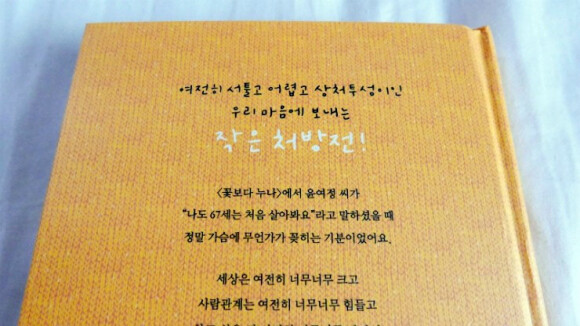 여전히 서툴고 어렵고 상처투성이인
우리 마음에 보내는
작은 처방전!
〈꽃보다 누나〉에서 윤여정 씨가
“나도 67세는 처음 살아봐요”라고 말하셨을 때
정말 가슴에 무언가가 꽂히는 기분이었어요.
세상은 여전히 너무너무 크고
사람관계는 여전히 너무너무 힘들고